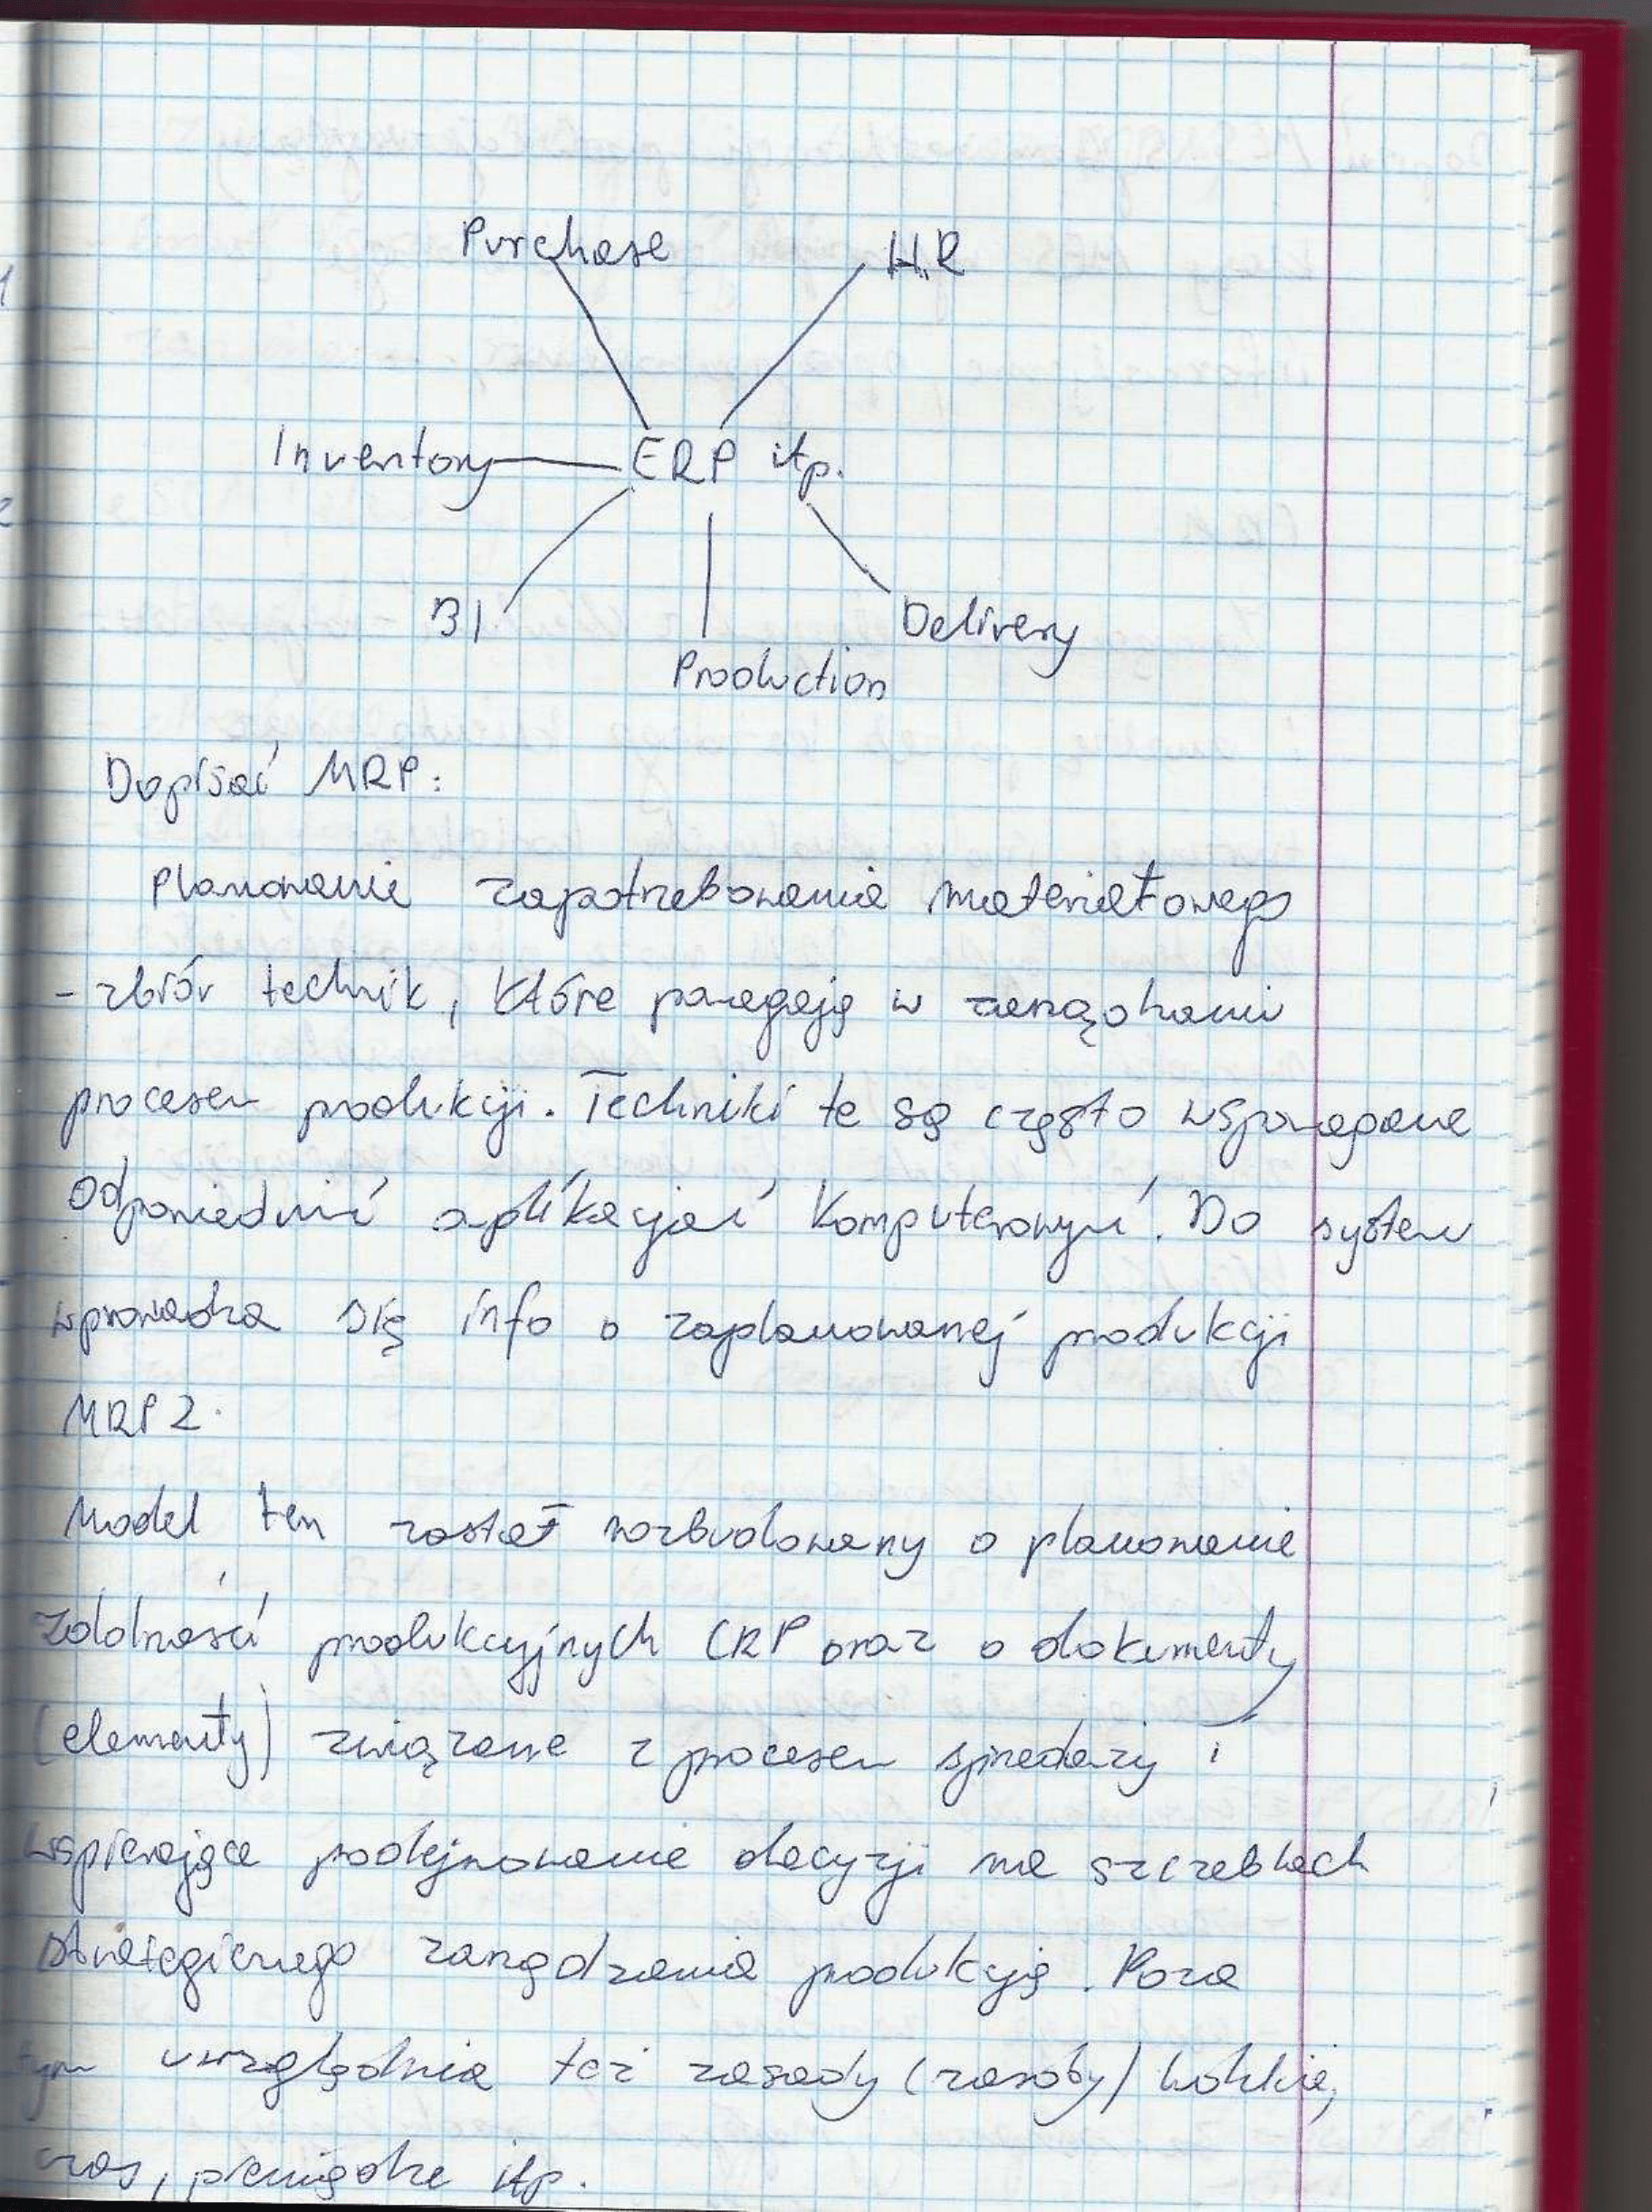 Purchase
HR
Inventory
ERP itp.
BI
Delivery
Production
Dopisać MRP:
Planowanie zapotrzebowania materiałowego
- zbiór technik, które pomagają w zarządzaniu
procesem produkcji. Techniki te są często wspomagane
odpowiednimi aplikacjami komputerowymi. Do system
wprowadza się info o zaplanowanej produkcji
MRP 2.
Model ten został rozbudowany o planowanie
zdolności produkcyjnych CRP oraz o dokumenty
(elementy) związane z procesem sprzedaży i
wspierające podejmowanie decyzji na szczeblach
strategicznego zarządzania produkcją. Poza
tym uwzględnia też zasady (zasoby) ludzkie,
czas, pieniądze itp.